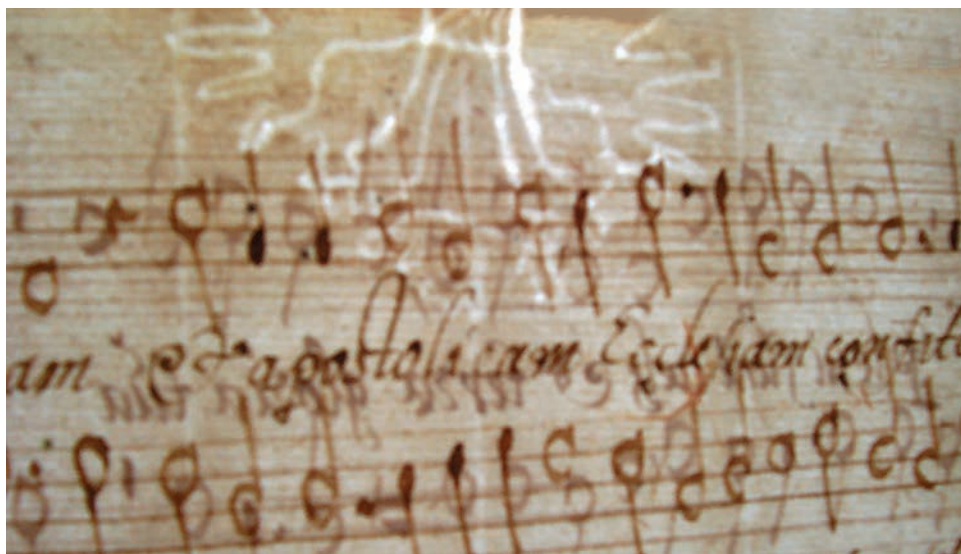 am et apostolicam Ecclesiam confite